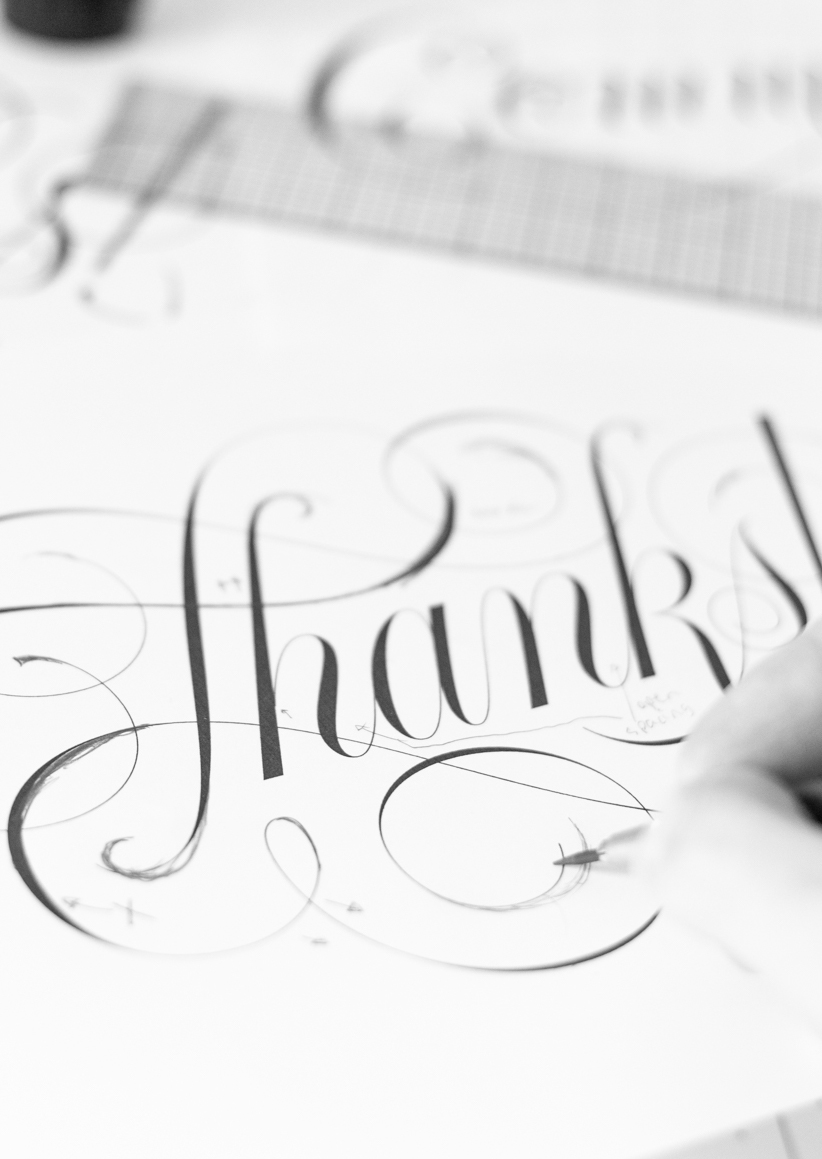 Thanks!
open
spacing